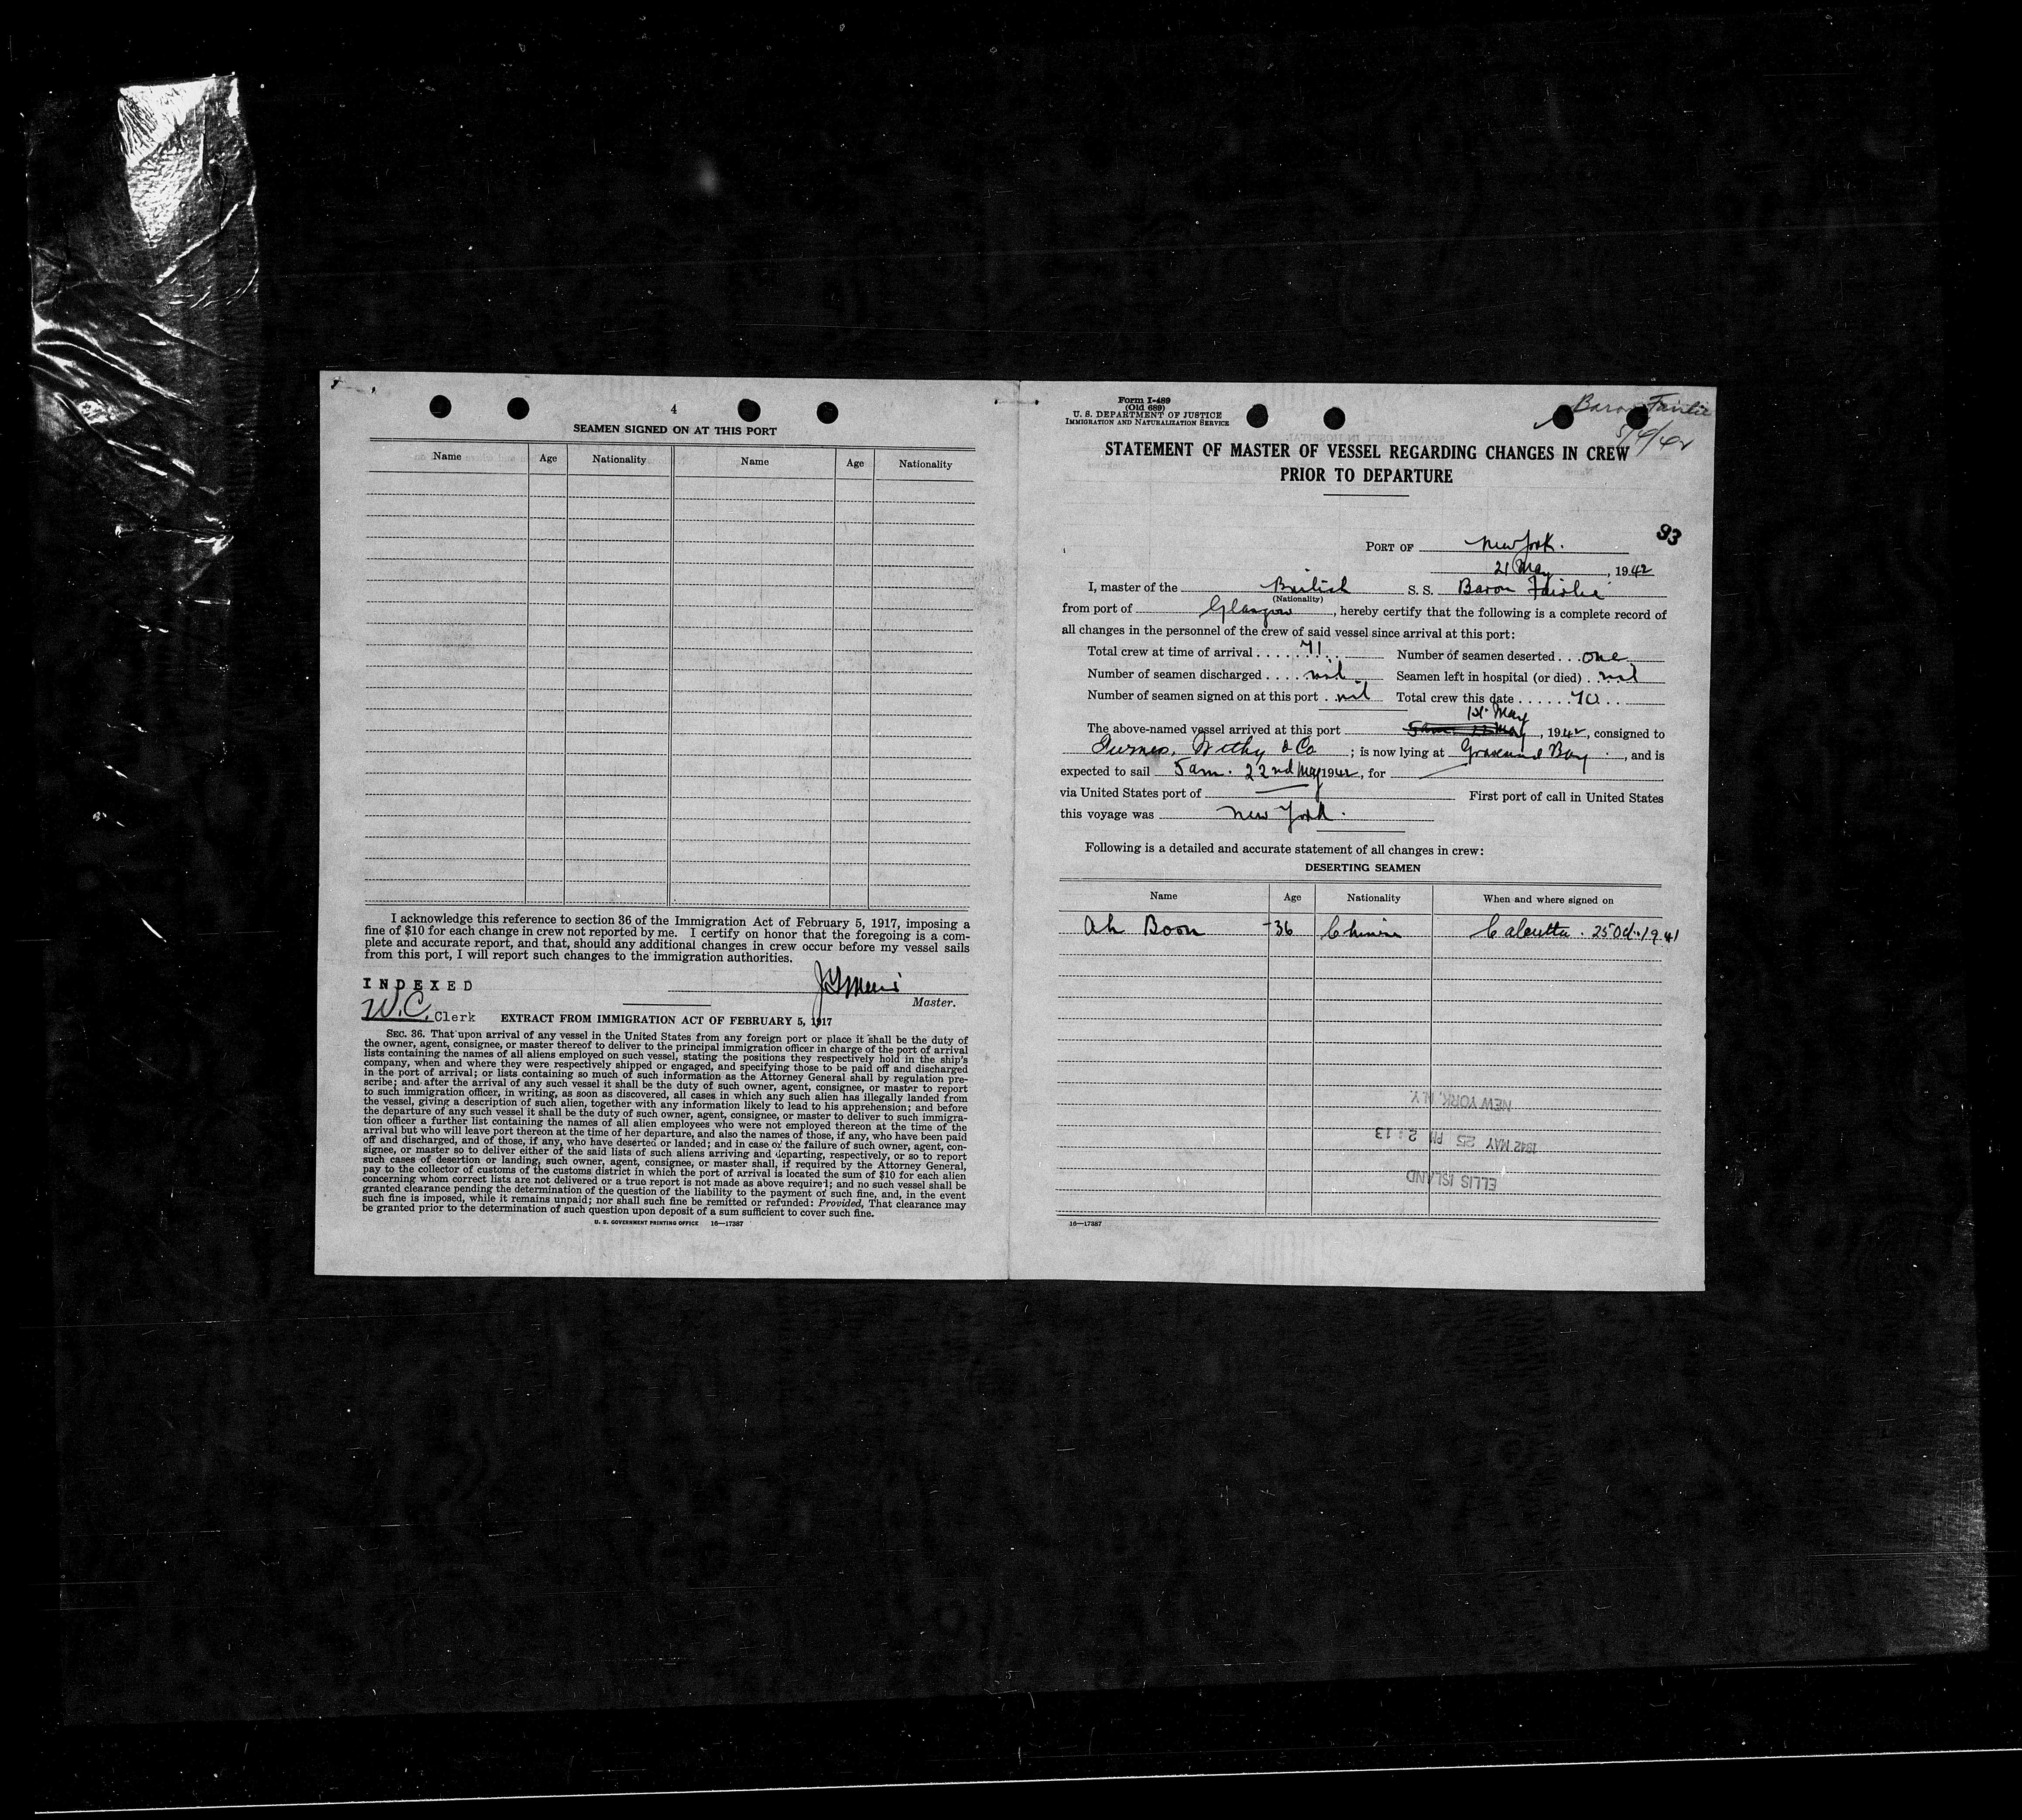 4
SEAMEN SIGNED ON AT THIS PORT
Name Age Nationality Name Age Nationality
I acknowledge this reference to section 36 of the Immigration Act of February 5, 1917, imposing a
fine of $10 for each change in crew not reported by me. I certify on honor that the foregoing is a com-
plete and accurate report, and that, should any additional changes in crew occur before my vessel sails
from this port, I will report such changes to the immigration authorities.
INDEXED
Master.
W.C. Clerk
EXTRACT FROM IMMIGRATION ACT OF FEBRUARY 5, 1917
SEC. 36. That upon arrival of any vessel in the United States from any foreign port or place it shall be the duty of
the owner, agent, consignee, or master thereof to deliver to the principal immigration officer in charge of the port of arrival
lists containing the names of all aliens employed on such vessel, stating the positions they respectively hold in the ship's
company, when and where they were respectively shipped or engaged, and specifying those to be paid off and discharged
in the port of arrival; or lists containing so much of such information as the Attorney General shall by regulation pre-
scribe; and after the arrival of any such vessel it shall be the duty of such owner, agent, consignee, or master to report
to such immigration officer, in writing, as soon as discovered, all cases in which any such alien has illegally landed from
the vessel, giving a description of such alien, together with any information likely to lead to his apprehension; and before
the departure of any such vessel it shall be the duty of such owner, agent, consignee, or master to deliver to such immigra-
tion officer a further list containing the names of all alien employees who were not employed thereon at the time of the
arrival but who will leave port thereon at the time of her departure, and also the names of those, if any, who have been paid
off and discharged, and of those, if any, who have deserted or landed; and in case of the failure of such owner, agent, con-
signee, or master so to deliver either of the said lists of such aliens arriving and departing, respectively, or so to report
such cases of desertion or landing, such owner, agent, consignee, or master shall, if required by the Attorney General,
pay to the collector of customs of the customs district in which the port of arrival is located the sum of $10 for each alien
concerning whom correct lists are not delivered or a true report is not made as above required; and no such vessel shall be
granted clearance pending the determination of the question of the liability to the payment of such fine, and, in the event
such fine is imposed, while it remains unpaid; nor shall such fine be remitted or refunded: Provided, That clearance may
be granted prior to the determination of such question upon deposit of a sum sufficient to cover such fine.
U. S. GOVERNMENT PRINTING OFFICE 16—17387
Form I-489
(Old 689)
U. S. DEPARTMENT OF JUSTICE
IMMIGRATION AND NATURALIZATION SERVICE
Baron Fairlie
STATEMENT OF MASTER OF VESSEL REGARDING CHANGES IN CREW
PRIOR TO DEPARTURE
93
PORT OF New York.
21 May, 1942
I, master of the British S. S. Baron Fairlie
(Nationality)
from port of Glasgow, hereby certify that the following is a complete record of
all changes in the personnel of the crew of said vessel since arrival at this port:
Total crew at time of arrival . . . . 71. Number of seamen deserted . . . one
Number of seamen discharged . . . . nil Seamen left in hospital (or died) . nil
Number of seamen signed on at this port . nil Total crew this date . . . . . . 70
1st May
The above-named vessel arrived at this port , 1942, consigned to
Furness, Withy & Co ; is now lying at Gravesend Bay, and is
expected to sail 5 am. 22nd May 1942, for
via United States port of First port of call in United States
this voyage was New York.
Following is a detailed and accurate statement of all changes in crew:
DESERTING SEAMEN
Name Age Nationality When and where signed on
Ah Boon 36 Chinese Calcutta. 25 Oct. 1941
NEW YORK, N.Y.
1942 MAY 25 PM 2:13
ELLIS ISLAND
16—17387